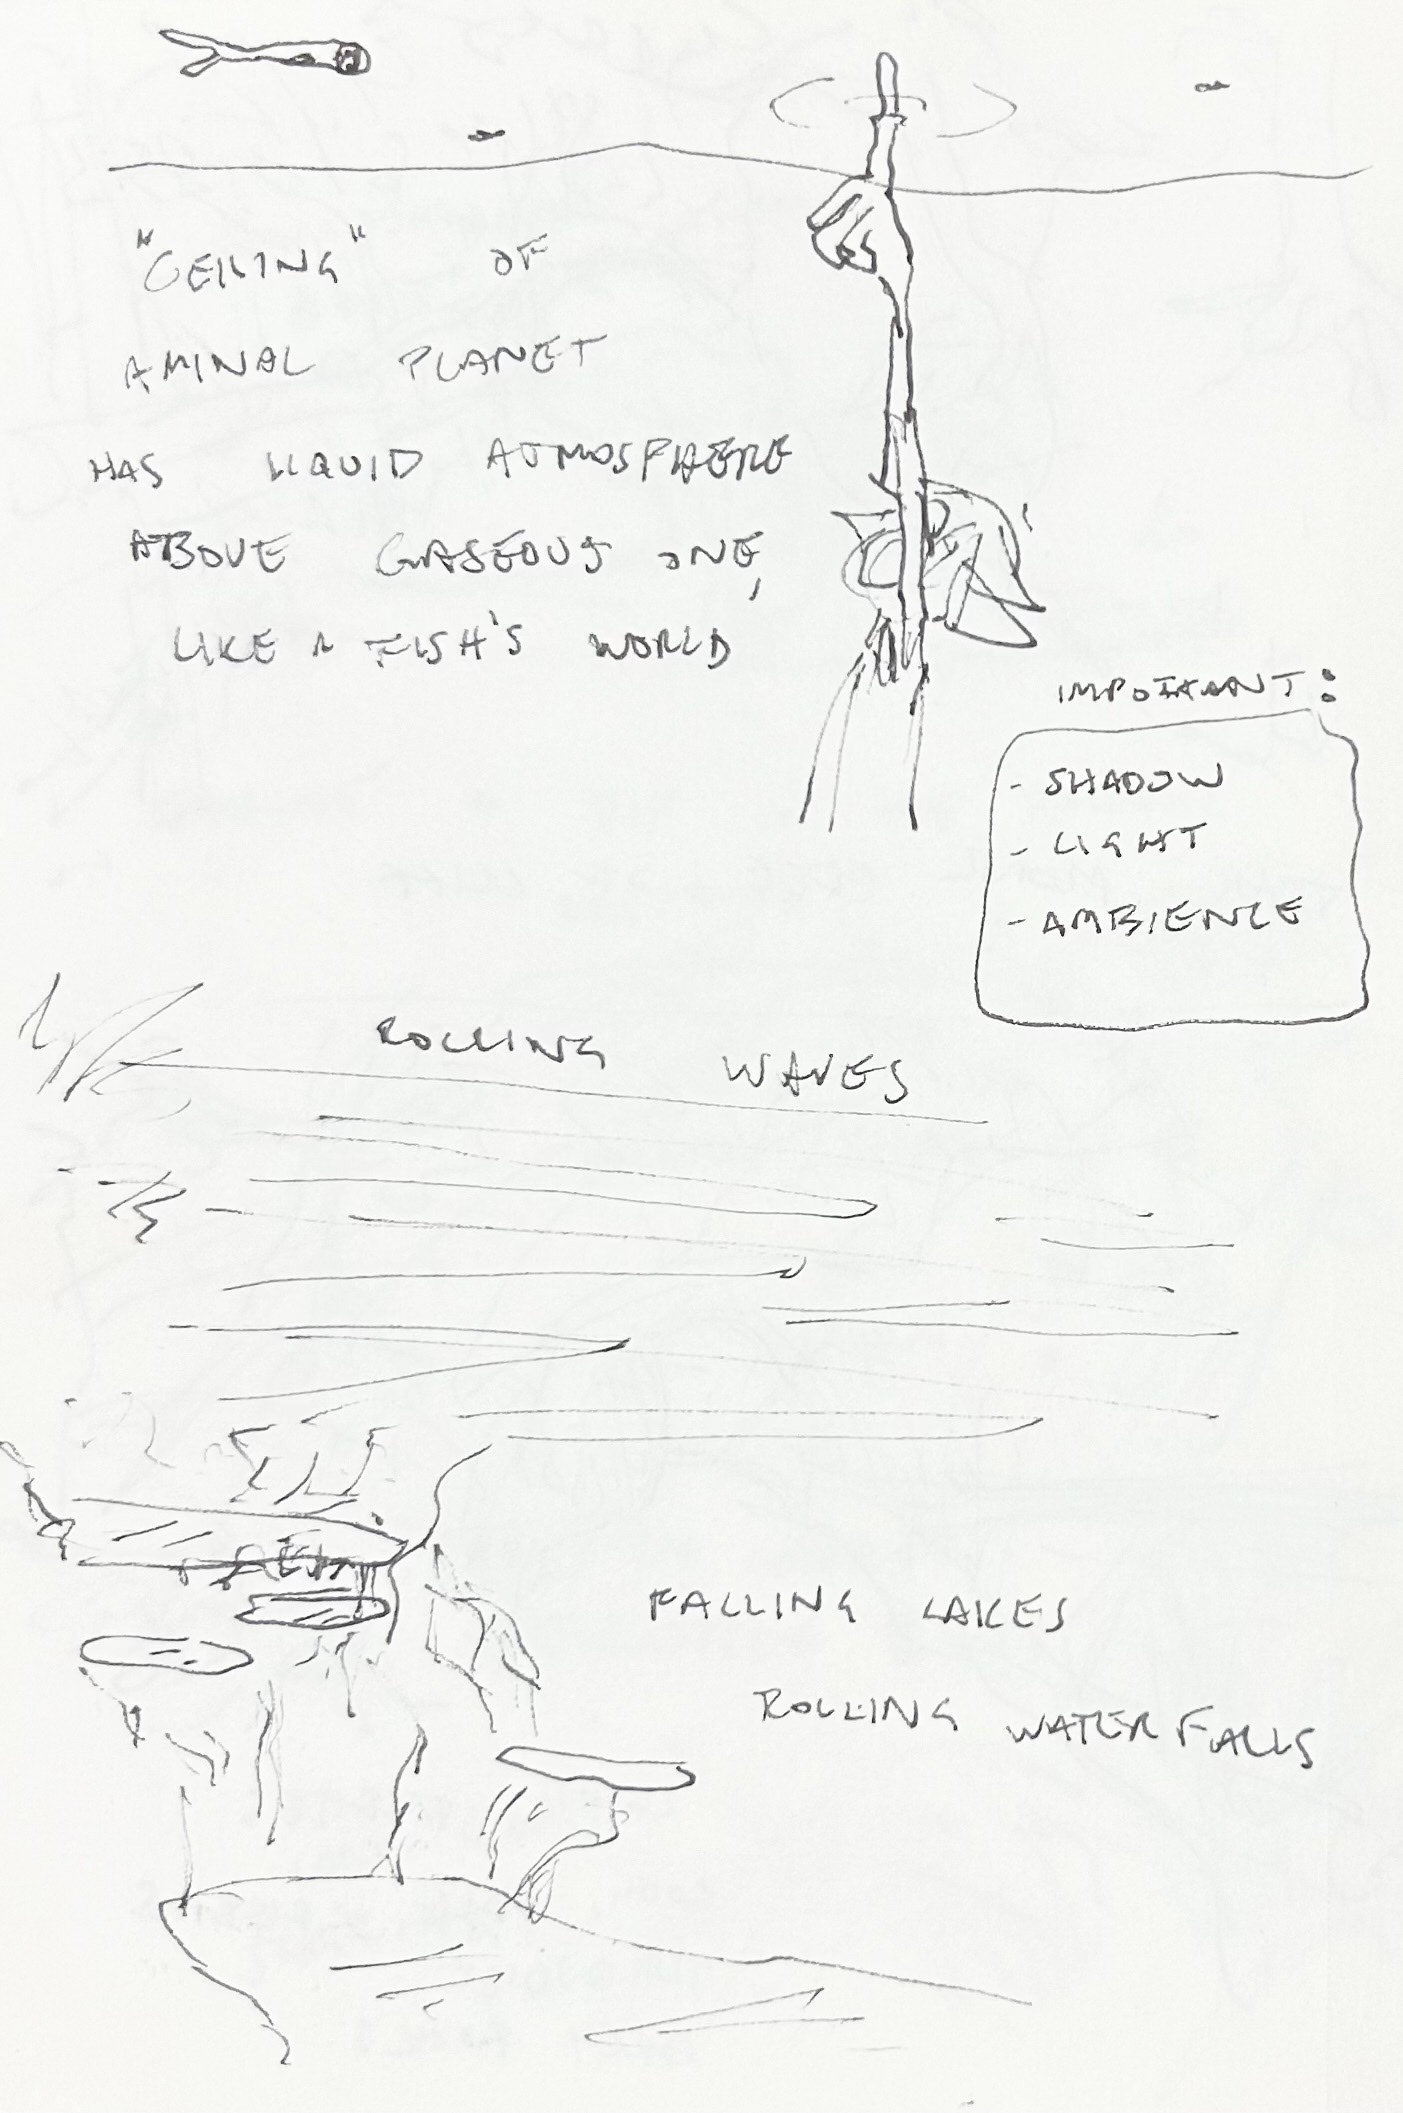 "CEILING" OF
AMINAL PLANET
HAS LIQUID ATMOSPHERE
ABOVE GASEOUS ONE,
LIKE A FISH'S WORLD
IMPORTANT:
- SHADOW
- LIGHT
- AMBIENCE
ROLLING WAVES
FALLING LAKES
ROLLING WATERFALLS